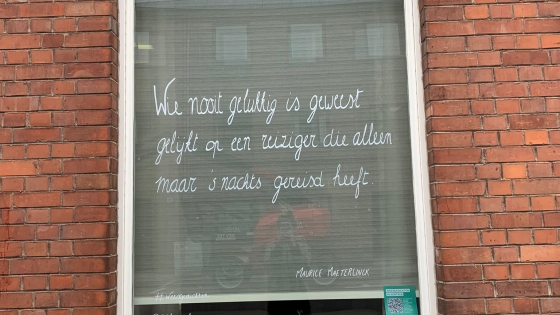 Wie nooit gelukkig is geweest
gelijkt op een reiziger die alleen
maar 's nachts gereisd heeft.
MAURICE MAETERLINCK